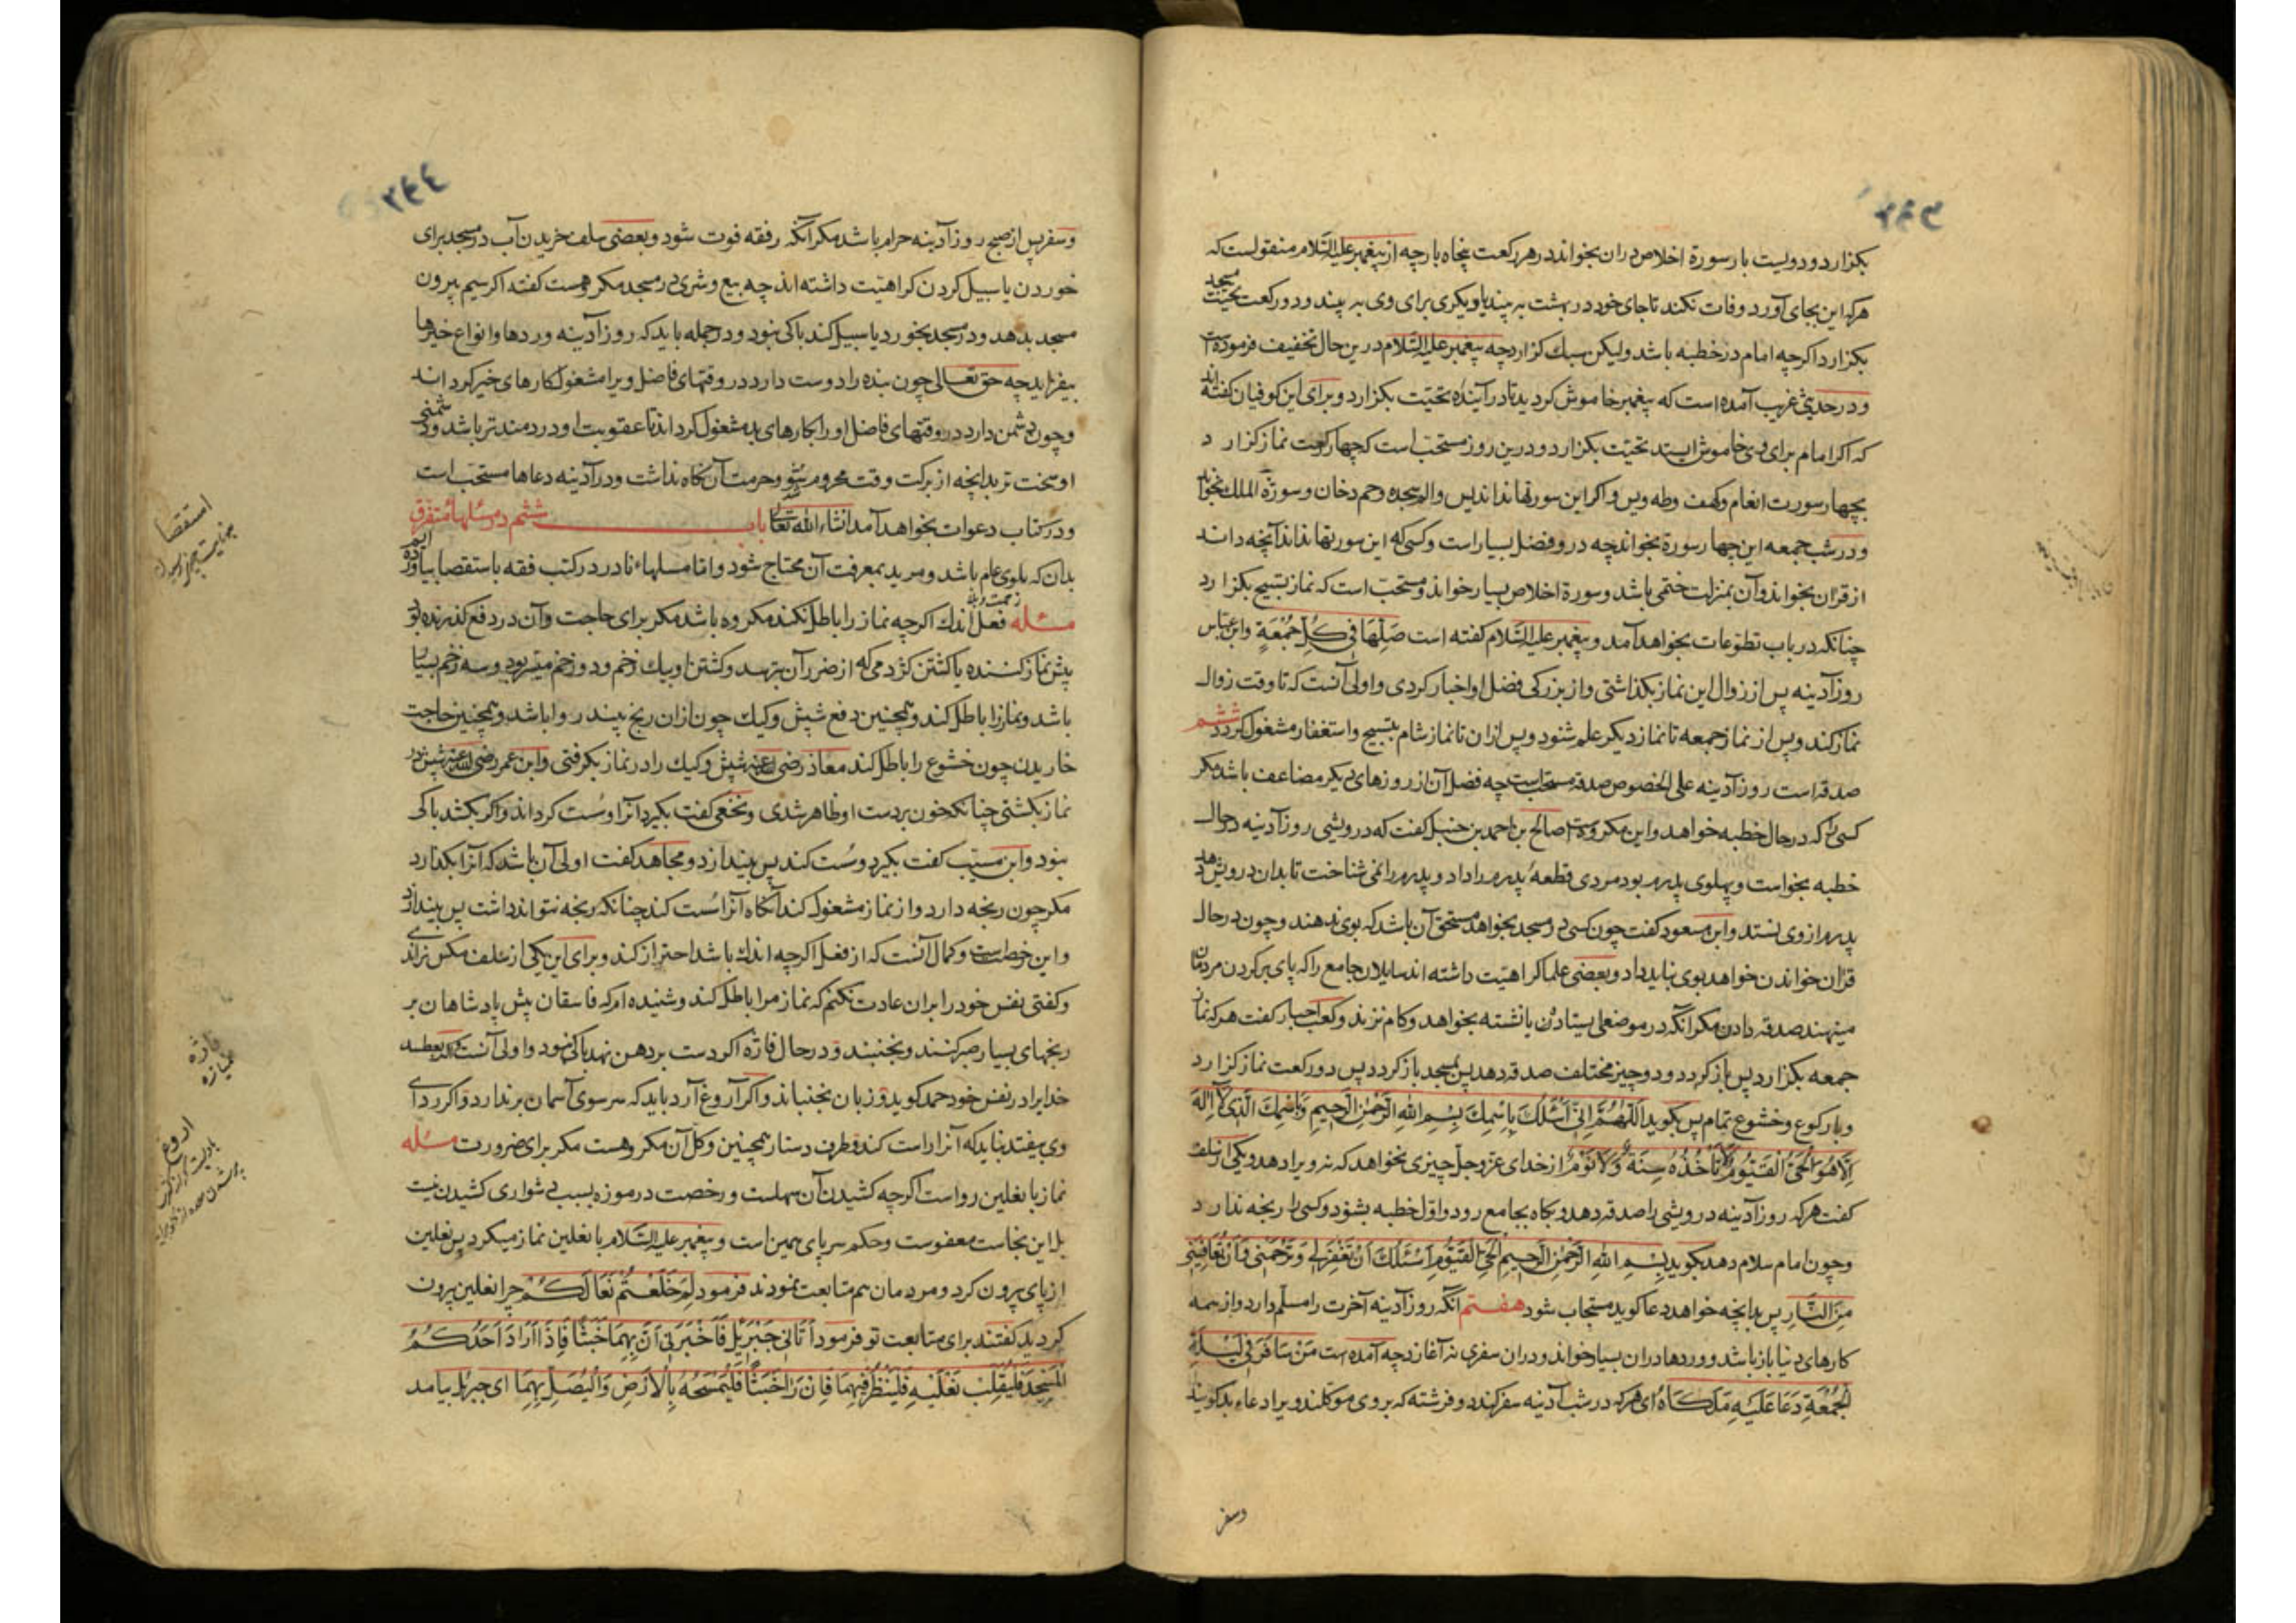 بکزارد و دویست بار سورة اخلاص دران بخواند در هر رکعت پنجاه بار چه از پیغمبر علیه السّلام منقولست که
هرکه این بجای آورد وفات نکند تا جای خود در بهشت به بیند یا دیکری برای وی به بیند و دو رکعت تحیّت مسجد
بکزارد اکرچه امام در خطبه باشد ولیکن سبك کزارد چه پیغمبر علیه السّلام درین حال تخفیف فرموده است
و در حدیثی غریب آمده است که پیغمبر خاموش کردید تا در آینده تحیّت بکزارد و برای این کوفیان کفته اند
که اکر امام برای وی خاموش ایستد تحیّت بکزارد و درین روز مستحبّ است که چهار رکعت نماز کزارد
بچهار سورت انعام وکهف وطه ویس و اکر این سورتها نداند یس والم سجده وحم دخان و سورة الملك بخواند
و در شب جمعه این چهار سورة بخواند چه درو فضل بسیار است و کسی که این سورتها نداند آنچه داند
از قرآن بخواند و آن بمنزلت ختمی باشد و سورة اخلاص بسیار خواند و مستحبّ است که نماز تسبیح بکزارد
چنانکه در باب تطوّعات بخواهد آمد و پیغمبر علیه السّلام کفته است صَلِّهَا فِی کُلِّ جُمُعَةٍ وابن عبّاس
روز آدینه پس از زوال این نماز بکذاشتی و از بزرکی فضل او اخبار کردی و اولی آنست که تا وقت زوال
نماز کند و پس از نماز جمعه تا نماز دیکر علم شنود و پس ازان تا نماز شام بتسبیح و استغفار مشغول کردد ششم
صدقه است روز آدینه علی الخصوص صدقه مستحبّ است چه فضل آن از روزهای دیکر مضاعف باشد مکر
کسی را که در حال خطبه خواهد و این مکروه است صالح بن احمد بن حنبل کفت که درویشی روز آدینه در حال
خطبه بخواست و پهلوی پدرم بود مردی قطعهٔ پدرم را داد و پدرم را نمی شناخت تا بدان درویش دهد
پدرم از وی نستد وابن مسعود کفت چون کسی در مسجد بخواهد مستحق آن باشد که بوی ندهند و چون در حال
قرآن خواندن خواهد بوی نباید داد و بعضی علما کراهیّت داشته اند سایلان جامع را که پای بر کردن مردمان
مینهند صدقه دادن مکر آنکه در موضعی ایستاده یا نشسته بخواهد و کام نزند و کعب احبار کفت هرکه نماز
جمعه بکزارد پس باز کردد و دو چیز مختلف صدقه دهد پس بمسجد باز کردد پس دو رکعت نماز کزارد
و بار کوع و خشوع تمام پس بکوید اَللّٰهُمَّ اِنّی اَسْئَلُكَ بِاسْمِكَ بِسْمِ اللهِ الرَّحْمٰنِ الرَّحِیمِ وَبِاسْمِكَ الَّذِی لَا اِلٰهَ
اِلَّا هُوَ الْحَیُّ الْقَیُّومُ لَا تَأْخُذُهُ سِنَةٌ وَلَا نَوْمٌ از خدای عزّ وجلّ چیزی نخواهد که نه ویرا دهد و یکی از سلف
کفت هرکه روز آدینه درویشی را صدقه دهد و بکاه بجامع رود و اوّل خطبه بشنود و کسی را رنجه ندارد
و چون امام سلام دهد بکوید بِسْمِ اللهِ الرَّحْمٰنِ الرَّحِیمِ الْحَیِّ الْقَیُّومِ اَسْئَلُكَ اَنْ تَغْفِرَلِی وَتَرْحَمَنِی وَاَنْ تُعَافِیَنِی
مِنَ النَّارِ پس بدانچه خواهد دعا کوید مستجاب شود هفتم آنکه روز آدینه آخرت را مسلّم دارد و از همه
کارهای دنیا باز باشد و وردها دران بسیار خواند و دران سفری نه آغازد چه آمده است مَنْ سَافَرَ فِی لَیْلَةِ
الْجُمُعَةِ دَعَا عَلَیْهِ مَلَکَاهُ ای هرکه در شب آدینه سفر کند دو فرشته که بر وی موکلند ویرا دعاء بد کویند
وسفر
وسفر پس از صبح روز آدینه حرام باشد مکر آنکه رفقه فوت شود و بعضی سلف خریدن آب در مسجد برای
خوردن یا سبیل کردن کراهیّت داشته اند چه بیع وشری در مسجد مکروهست کفته اند اکر سیم بیرون
مسجد بدهد و در مسجد بخورد یا سبیل کند باکی نبود و در جمله باید که روز آدینه وردها و انواع خیرها
بیفزاید چه حق تعالی چون بنده را دوست دارد در وقتهای فاضل ویرا مشغول کارهای خیر کرداند
و چون دشمن دارد در وقتهای فاضل او را بکارهای بد مشغول کرداند تا عقوبت او دردمند تر باشد و دشمنی
او سخت تر بدانچه از برکت وقت محروم شود و حرمت آن نکاه نداشت و در آدینه دعاها مستحبّ است
و در کتاب دعوات بخواهد آمد انشاء الله تعالی باب ششم در مسٔلهاء متفرق
بدان که بلوی عام باشد و مرید بمعرفت آن محتاج شود و اما مسلهاء نادر در کتب فقه باستقصا بیاورده ایم
مسٔله فعل اندك اکرچه نماز را باطل نکند مکروه باشد مکر برای حاجت و آن در دفع کذرنده بود
پیش نماز کننده یا کشتن کژدمی که از ضرر آن بترسد و کشتن او بیك زخم و دو زخم میسّر بود و سه زخم بسیار
باشد و نماز را باطل کند و همچنین دفع شپش و کیك چون ازان رنج بیند روا باشد و همچنین حاجت
خاریدن چون خشوع را باطل کند معاذ رضی الله عنه شپش و کیك را در نماز بکرفتی وابن عمر رضی الله عنه شپش در
نماز بکشتی چنانکه خون بر دست او ظاهر شدی و نخعی کفت بکیرد آنرا و سُست کرداند و اکر بکشد باکی
نبود وابن مسیّب کفت بکیرد و سُست کند پس بیندازد و مجاهد کفت اولی آن باشد که آنرا بکذارد
مکر چون رنجه دارد و از نماز مشغول کند آنکاه آنرا سُست کند چنانکه رنجه نتواند داشت پس بیندازد
و این رخصتست و کمال آنست که از فعل اکرچه اندك باشد احتراز کند و برای این یکی از سلف مکس نراندی
و کفتی نفس خود را بران عادت نکنم که نماز مرا باطل کند و شنیده ام که فاسقان پیش پادشاهان بر
رنجهای بسیار صبر کنند و نجنبند و در حال فاژه اکر دست بر دهن نهد باکی نبود و اولی آنست که اکر بعطسد
خدایرا در نفس خود حمد کوید و زبان نجنباند و اکر آروغ آرد باید که سر سوی آسمان بر ندارد و اکر ردای
وی بیفتد نباید که آنرا راست کند و طرف دستار همچنین و کل آن مکروهست مکر برای ضرورت مسٔله
نماز با نعلین رواست اکرچه کشیدن آن سهلست و رخصت در موزه بسبب دشواری کشیدن نیست
بل این نجاست معفوست و حکم سر پای همین است و پیغمبر علیه السّلام با نعلین نماز میکرد پس نعلین
از پای بیرون کرد و مردمان هم متابعت نمودند فرمود لِمَ خَلَعْتُمْ نَعَالَکُمْ چرا نعلین بیرون
کردید کفتند برای متابعت تو فرمود اَتَانِی جَبْرَیِٔلُ فَاَخْبَرَنِی اَنَّ بِهِمَا خَبَثًا فَاِذَا اَرَادَ اَحَدُکُمُ
الْمَسْجِدَ فَلْیُقَلِّبْ نَعْلَیْهِ فَلْیَنْظُرْ فِیهِمَا فَاِنْ رَاٰ خَبَثًا فَلْیَمْسَحْهُ بِالْاَرْضِ وَالْیُصَلِّ بِهِمَا ای جبریٔل بیامد
استقصا
فاژه
خمیازه
اروغ